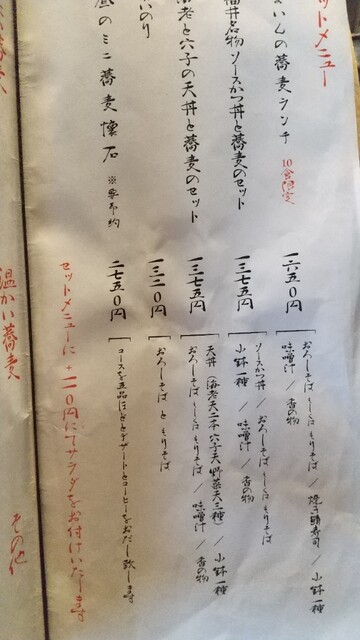 ットメニュー
いんの蕎麦ランチ 10食限定 一六五〇円
おろしそば もしくは もりそば / 焼き鯖寿司 / 小鉢一種
味噌汁 / 香の物
福井名物 ソースかつ丼と蕎麦のセット 一三七五円
ソースかつ丼 おろしそば もしくは もりそば
小鉢一種 / 味噌汁 / 香の物
海老と穴子の天丼と蕎麦のセット 一三七五円
天丼 海老天二本 穴子天 野菜天三種 / 小鉢一種
おろしそば もしくは もりそば / 味噌汁 / 香の物
いのり 一三二〇円
おろしそば と もりそば
昼のミニ蕎麦懐石 ※要予約 二七五〇円
コースを五品にほどとデザートとコーヒーをおだし致します
セットメニューに +一一〇円にてサラダをお付けいたします
温かい蕎麦
その他